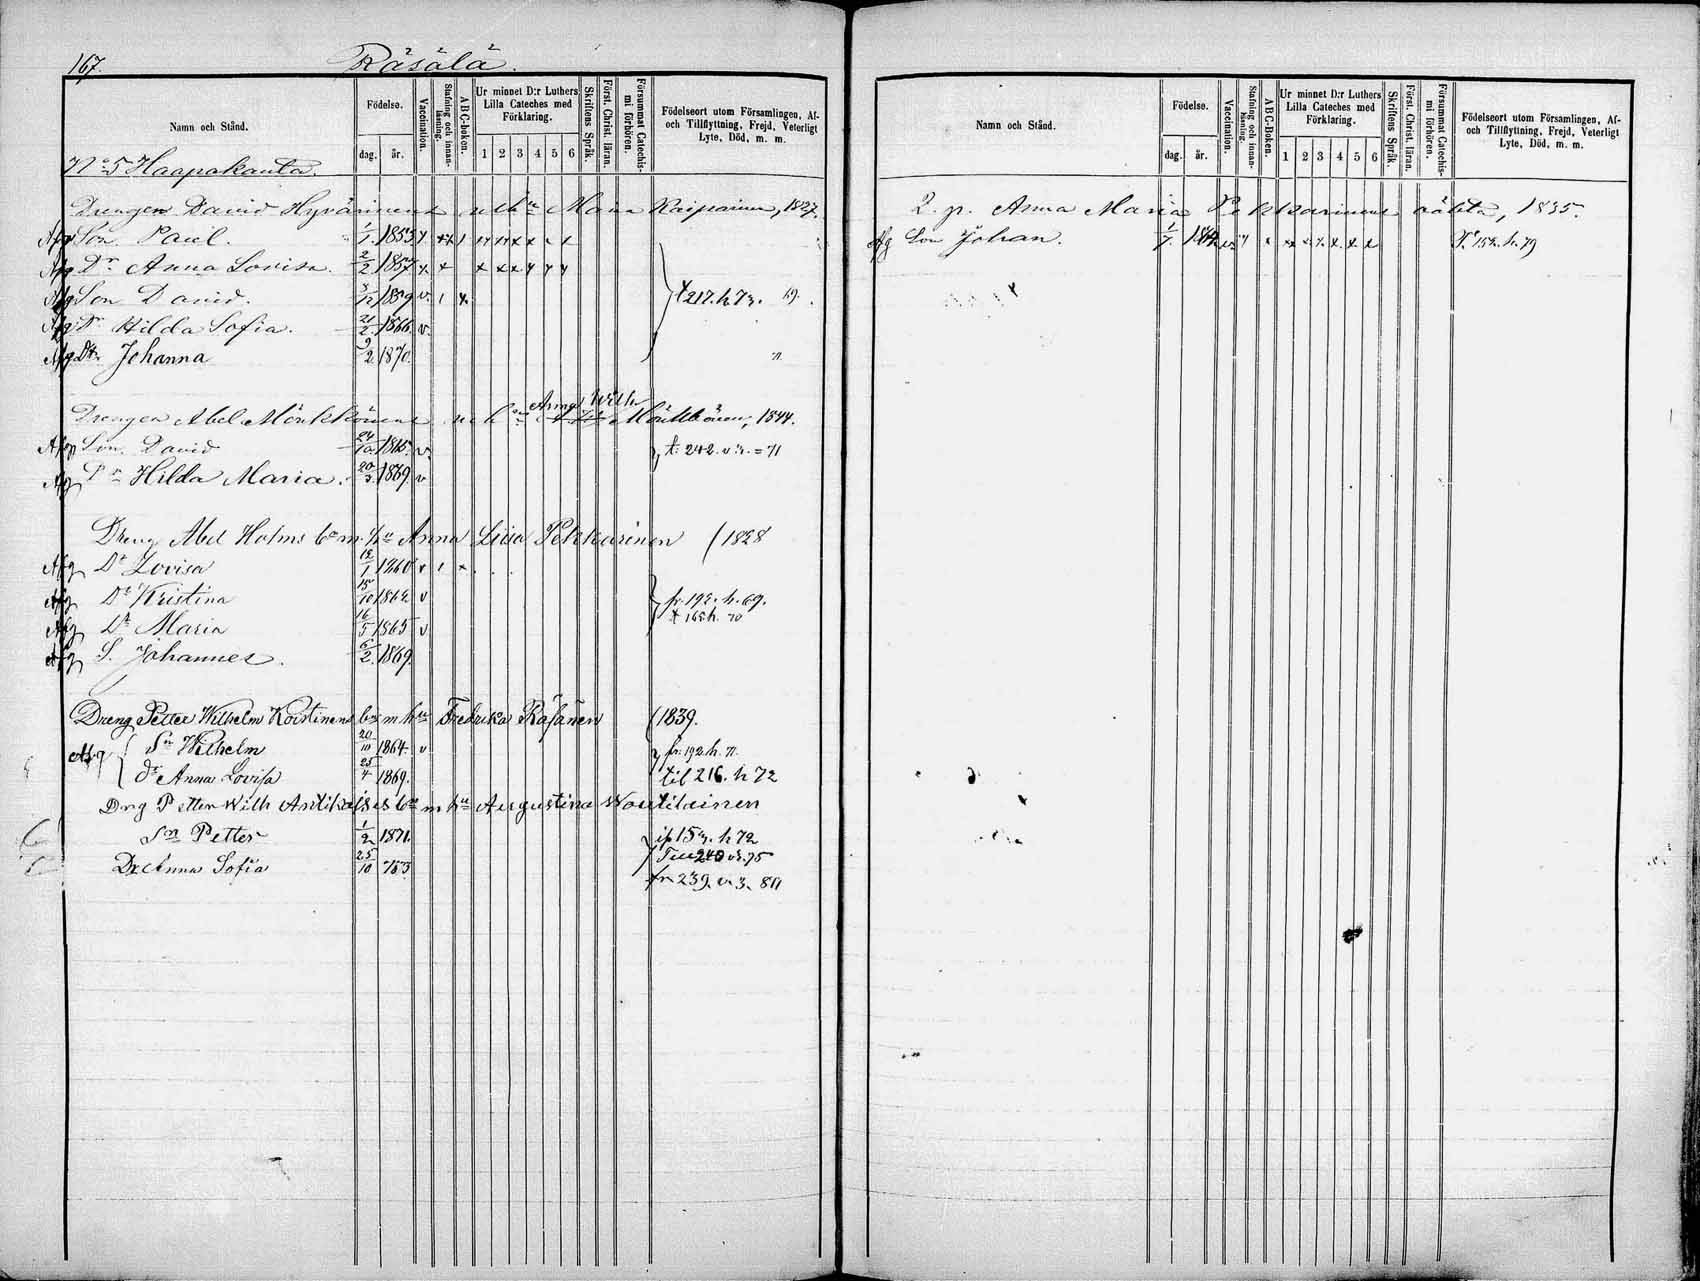 167. Räsälä.
Namn och Stånd.
Födelse.
dag. år.
Vaccination.
Stafning och innan-läsning.
A B C-boken.
Ur minnet D:r Luthers Lilla Cateches med Förklaring.
1 2 3 4 5 6
Skriftens Språk.
Först. Christ. läran.
Försummat Catechis-mi förhören.
Födelseort utom Församlingen, Af- och Tillflyttning, Frejd, Veterligt Lyte, Död, m. m.
No 5 Haapakanta.
Drengen David Hyvärinens Maria Kaipainen, 1827.
Afg Son Paul. 1/1 1853
Afg Dr Anna Lovisa. 2/2 1857
Afg Son David. 3/12 1859 v. t 217. h 73.
Afg Dr Hilda Sofia. 21/2 1866. v.
Afg Dtr Johanna 9/2 1870.
Drengen Abel Mönkkönens Anna Wilh Mönkkönen, 1844.
Afg Son David 24/10 1865. v t. 242. v. 3. = 71
Afg Dr Hilda Maria. 20/3 1869. v
Dreng Abel Holms bn m. hu Anna Liisa Pekkarinen (1828
Afg Dr Lovisa 12/1 1860
Afg Dr Kristina 15/10 1862 v fr. 192. h. 69.
Afg Dr Maria 16/5 1865 v t 165 h. 70
Afg S. Johannes. 6/2 1869.
Dreng Petter Wilhelm Koistinens bn m hu Fredrika Räsänen (1839.
Afg Sn Wilhelm 20/10 1864. v fr. 192 h. 71.
dr Anna Lovisa 25/4 1869. til 216. h 72
Drg Petter Wilh Antikaises bn m hu Augustina Voutilainen
Sn Petter 1/2 1871. ifr 153. h 72
Till 240 v 3. 75
Dr Anna Sofia 25/10 753
fr 239. v. 3. 80
Namn och Stånd.
Födelse.
dag. år.
Vaccination.
Stafning och innan-läsning.
A B C-Boken.
Ur minnet D:r Luthers Lilla Cateches med Förklaring.
1 2 3 4 5 6
Skriftens Språk.
Först. Christ. läran.
Försummat Catechis-mi förhören.
Födelseort utom Församlingen, Af- och Tillflyttning, Frejd, Veterligt Lyte, Död, m. m.
2. p. Anna Maria Pekkarinens oäkta, 1835.
Afg Son Johan. 1/7 1864 T. 152. h. 79